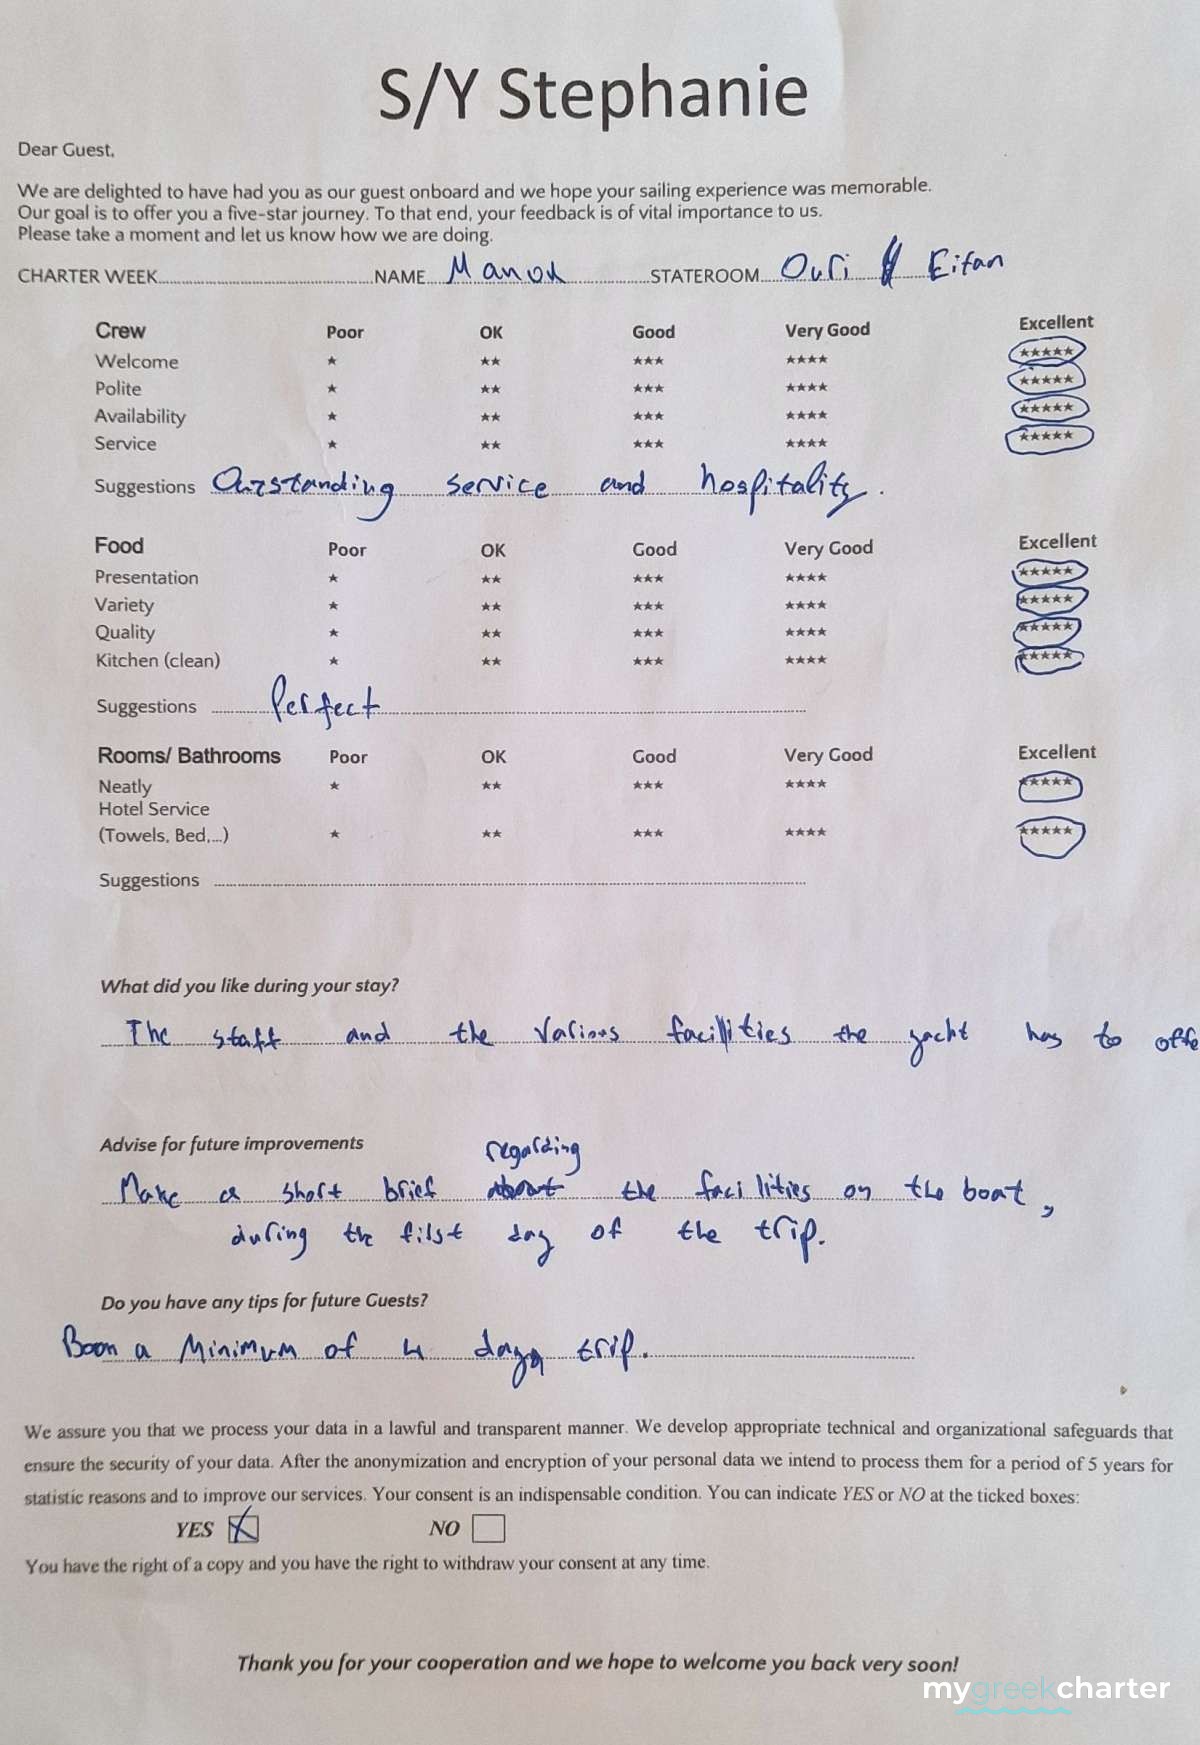 S/Y Stephanie
Dear Guest,
We are delighted to have had you as our guest onboard and we hope your sailing experience was memorable.
Our goal is to offer you a five-star journey. To that end, your feedback is of vital importance to us.
Please take a moment and let us know how we are doing.
CHARTER WEEK NAME STATEROOM Ouri Eitan
Crew Poor OK Good Very Good Excellent
Welcome ★ ★★ ★★★ ★★★★ ★★★★★
Polite ★ ★★ ★★★ ★★★★ ★★★★★
Availability ★ ★★ ★★★ ★★★★ ★★★★★
Service ★ ★★ ★★★ ★★★★ ★★★★★
Suggestions Outstanding service and hospitality.
Food Poor OK Good Very Good Excellent
Presentation ★ ★★ ★★★ ★★★★ ★★★★★
Variety ★ ★★ ★★★ ★★★★ ★★★★★
Quality ★ ★★ ★★★ ★★★★ ★★★★★
Kitchen (clean) ★ ★★ ★★★ ★★★★ ★★★★★
Suggestions Perfect
Rooms/ Bathrooms Poor OK Good Very Good Excellent
Neatly ★ ★★ ★★★ ★★★★ ★★★★★
Hotel Service
(Towels, Bed,...) ★ ★★ ★★★ ★★★★ ★★★★★
Suggestions
What did you like during your stay?
The staff and the various facillities the yacht has to offe
Advise for future improvements
regarding
Make a short brief about the facilities on the boat,
during the first day of the trip.
Do you have any tips for future Guests?
a Minimum of 4 trip.
We assure you that we process your data in a lawful and transparent manner. We develop appropriate technical and organizational safeguards that
ensure the security of your data. After the anonymization and encryption of your personal data we intend to process them for a period of 5 years for
statistic reasons and to improve our services. Your consent is an indispensable condition. You can indicate YES or NO at the ticked boxes:
YES NO
You have the right of a copy and you have the right to withdraw your consent at any time.
Thank you for your cooperation and we hope to welcome you back very soon!
mygreekcharter